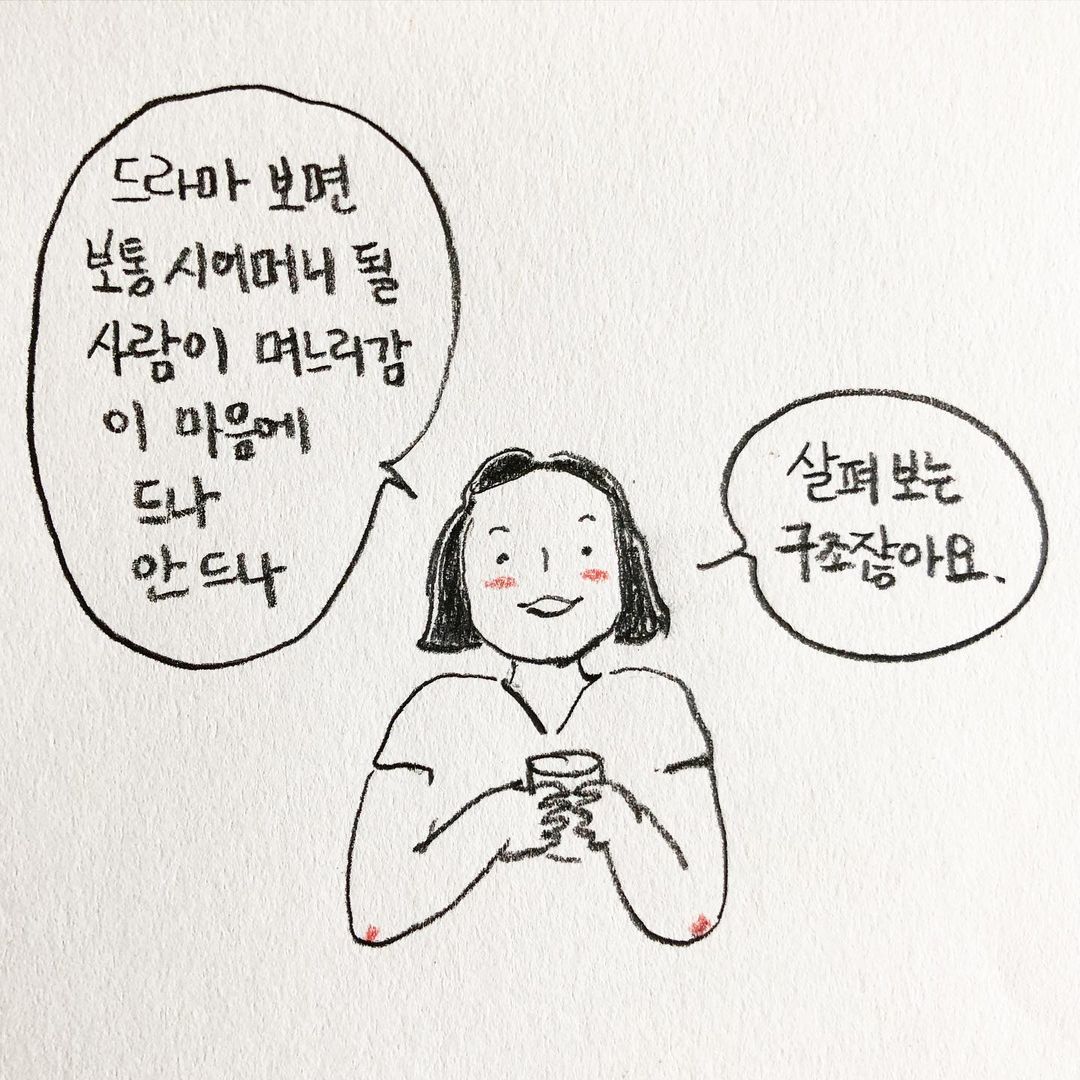 드라마 보면
보통 시어머니 될
사람이 며느리감
이 마음에
드나
안 드나
살펴 보는
구조잖아요.